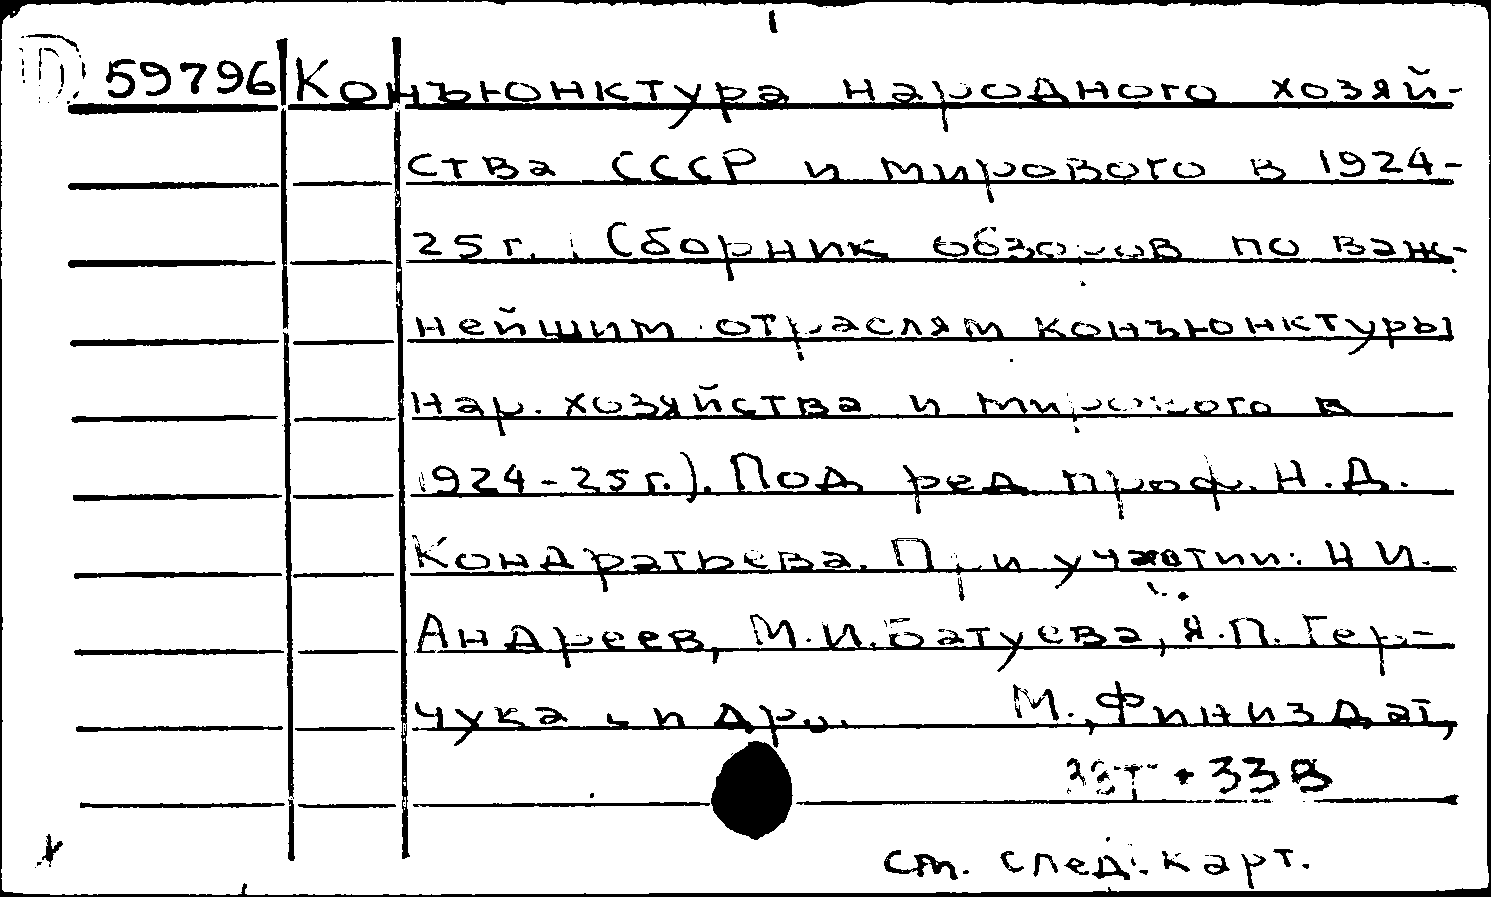 D 59796 Конъюнктура народного хозяй-
ства СССР и мирового в 1924-
25 г. (Сборник обзоров по важ-
нейшим отраслям конъюнктуры
нар. хозяйства и мирового в
1924-25 г.). Под ред. проф. Н.Д.
Кондратьева. При участии: Н И.
Андреев, М.И. Батуева, Я.П. Гер-
чука и др. М., Финиздат,
33Т + 33В
см. след. карт.